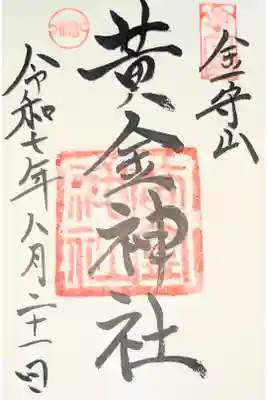 金守山
黄金神社
令和七年八月二十一日